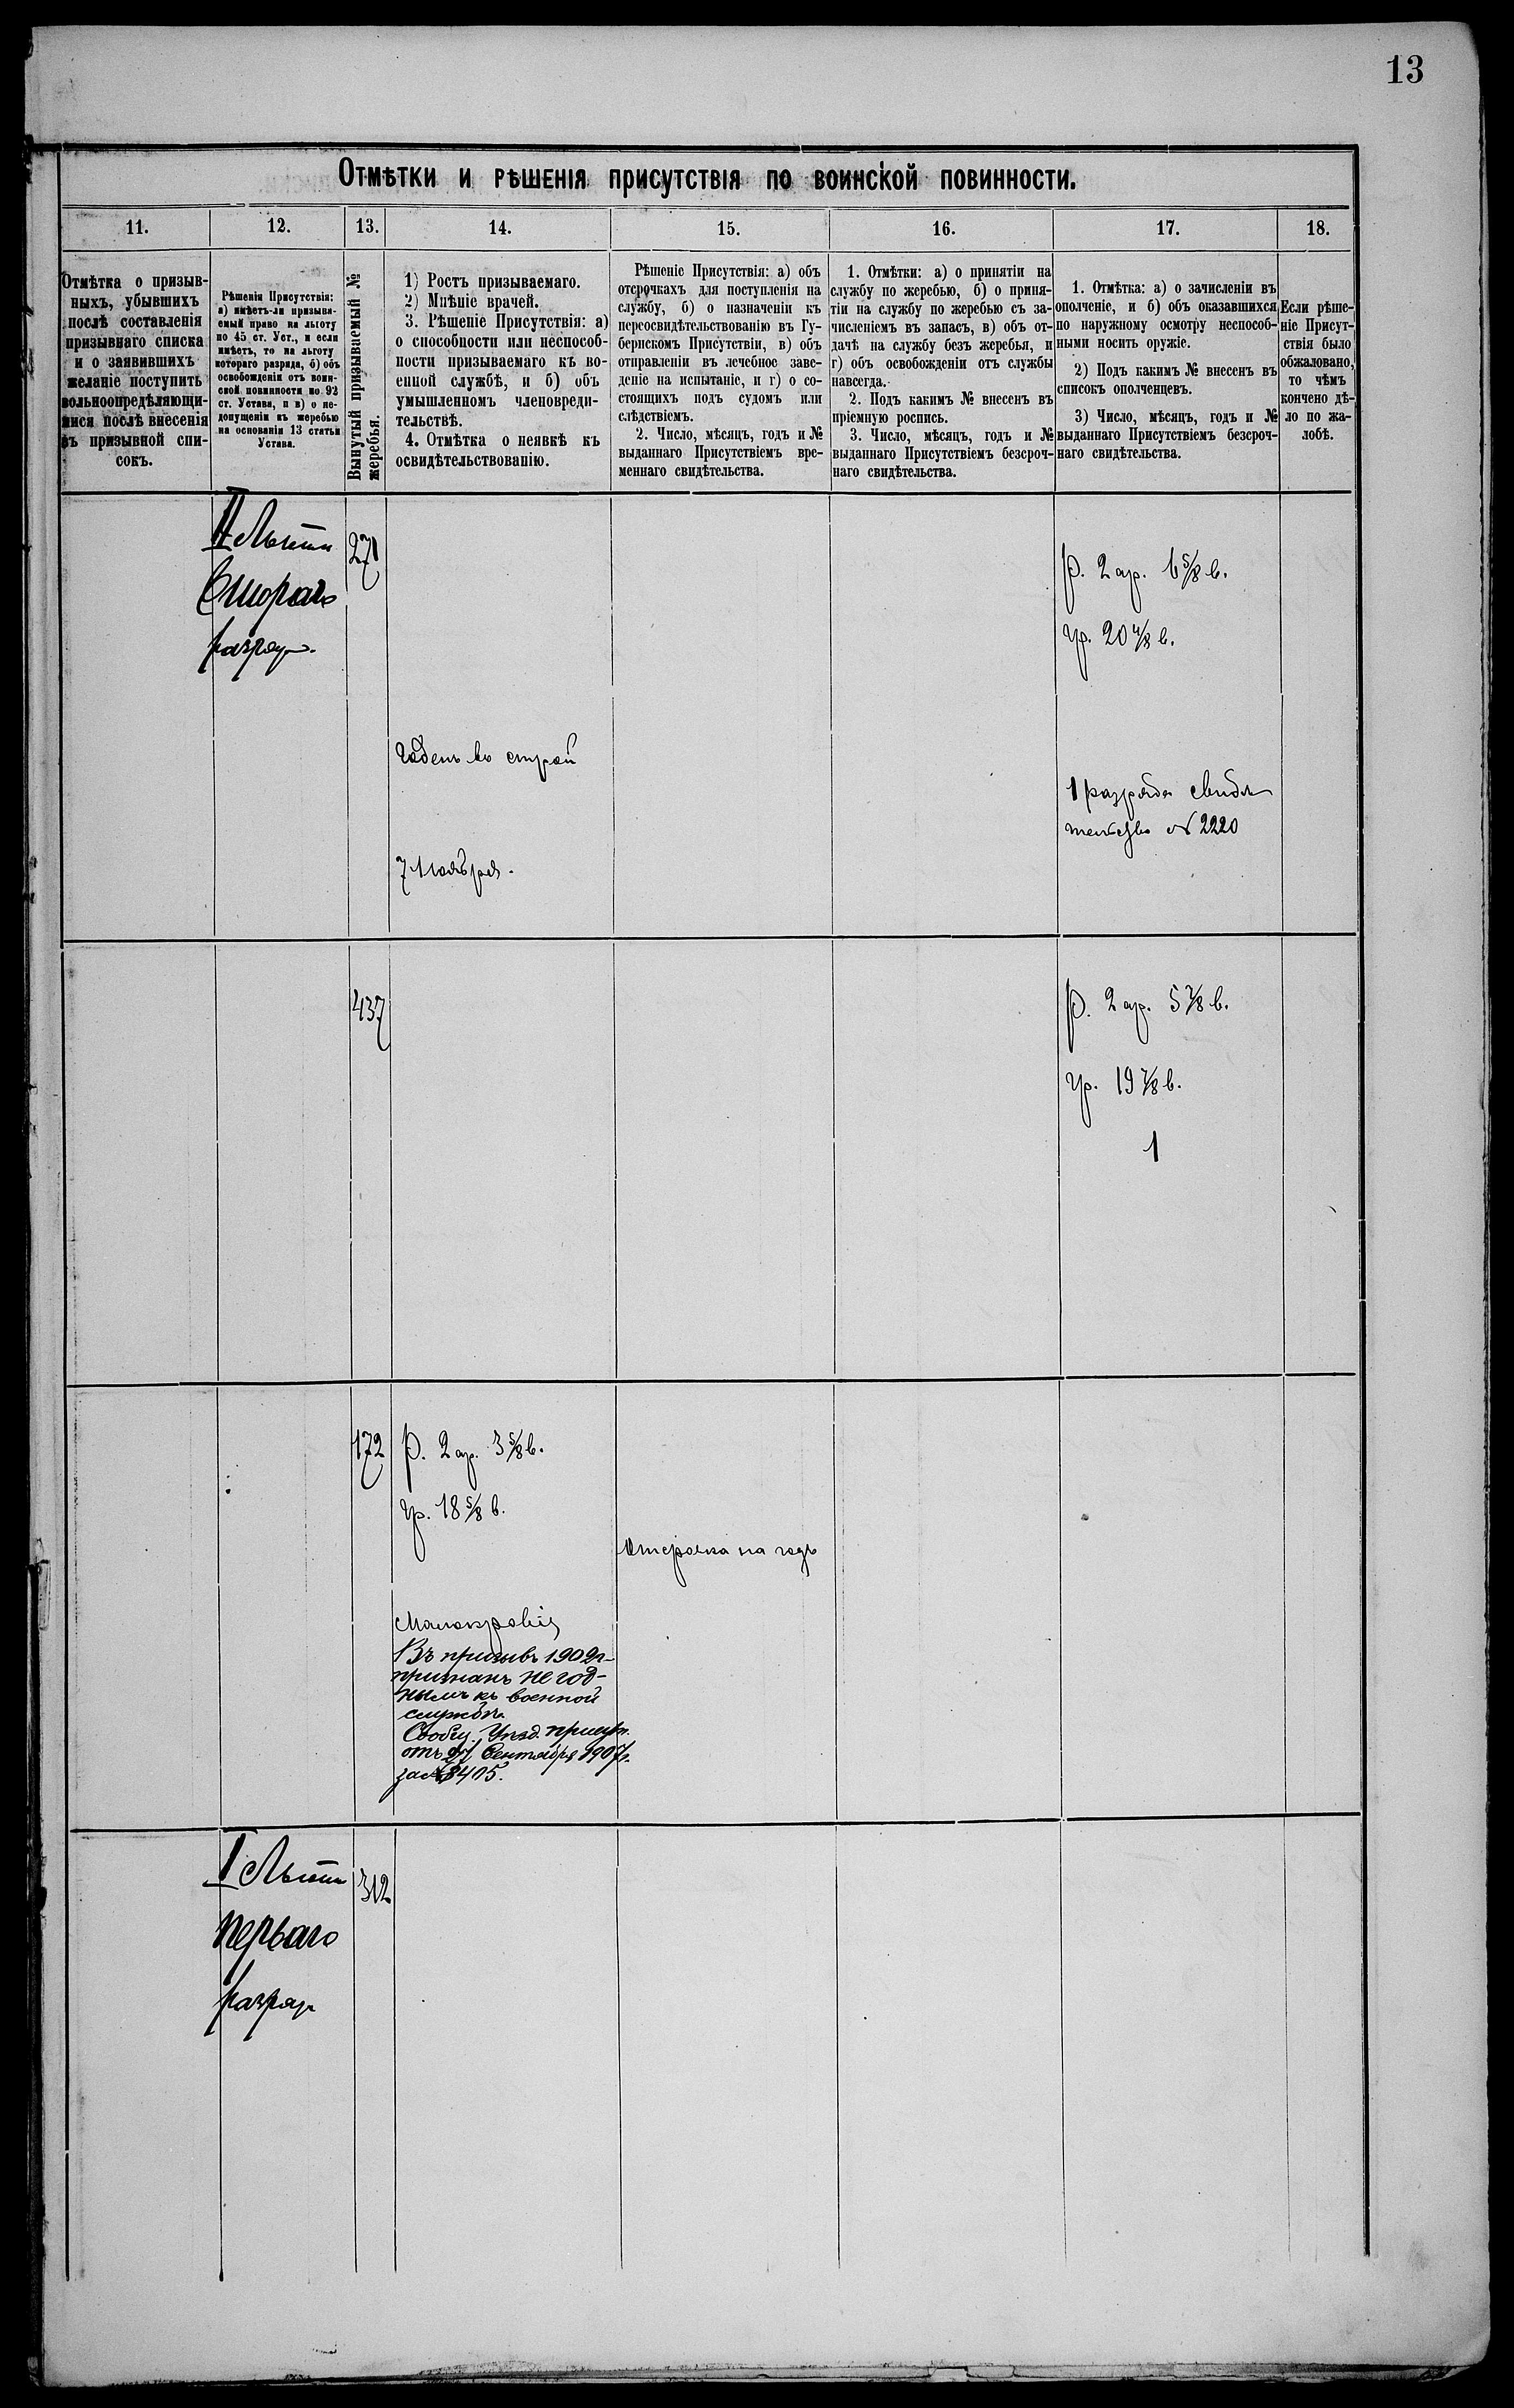 13
Отмѣтки и рѣшенія присутствія по воинской повинности.
11.
12.
13.
14.
15.
16.
17.
18.
Отмѣтка о призыв-
ныхъ, убывшихъ
послѣ составленія
призывнаго списка
и о заявившихъ
желаніе поступить
вольноопредѣляющи-
мися послѣ внесенія
въ призывной спи-
сокъ.
Рѣшенія Присутствія:
а) имѣетъ-ли призыва-
емый право на льготу
по 45 ст. Уст., и если
имѣетъ, то на льготу
котораго разряда, б) объ
освобожденіи отъ воин-
ской повинности по 92
ст. Устава, и в) о не-
допущеніи къ жеребью
на основаніи 13 статьи
Устава.
Вынутый призываемый №
жеребья.
1) Ростъ призываемаго.
2) Мнѣніе врачей.
3. Рѣшеніе Присутствія: а)
о способности или неспособ-
ности призываемаго къ во-
енной службѣ, и б) объ
умышленномъ членовреди-
тельствѣ.
4. Отмѣтка о неявкѣ къ
освидѣтельствованію.
Рѣшеніе Присутствія: а) объ
отсрочкахъ для поступленія на
службу, б) о назначеніи къ
переосвидѣтельствованію въ Гу-
бернскомъ Присутствіи, в) объ
отправленіи въ лечебное заве-
деніе на испытаніе, и г) о со-
стоящихъ подъ судомъ или
слѣдствіемъ.
2. Число, мѣсяцъ, годъ и №
выданнаго Присутствіемъ вре-
меннаго свидѣтельства.
1. Отмѣтки: а) о принятіи на
службу по жеребью, б) о приня-
тіи на службу по жеребью съ за-
численіемъ въ запасъ, в) объ от-
дачѣ на службу безъ жеребья, и
г) объ освобожденіи отъ службы
навсегда.
2. Подъ какимъ № внесенъ въ
пріемную роспись.
3. Число, мѣсяцъ, годъ и №
выданнаго Присутствіемъ безсроч-
наго свидѣтельства.
1. Отмѣтка: а) о зачисленіи въ
ополченіе, и б) объ оказавшихся
по наружному осмотру неспособ-
ными носить оружіе.
2) Подъ какимъ № внесенъ въ
списокъ ополченцевъ.
3) Число, мѣсяцъ, годъ и №
выданнаго Присутствіемъ безсроч-
наго свидѣтельства.
Если рѣше-
ніе Присут-
ствія было
обжаловано,
то чѣмъ
кончено дѣ-
ло по жа-
лобѣ.
II Льготы
Второго
разряда
271
Годенъ въ строй
7 Ноября.
р. 2 ар. 6 5/8 в.
гр. 20 4/8 в.
1 разряда свидѣ
тельство № 2220
437
р. 2 ар. 5 7/8 в.
гр. 19 7/8 в.
1
172
р. 2 ар. 3 5/8 в.
гр. 18 5/8 в.
Малокровіе
Въ призывъ 1902 г
признанъ не год-
нымъ къ военной
службѣ.
Сообщ. Уѣзд. присут.
отъ Сентября 1907 г.
за № 8405.
Отсрочка на годъ
I Льготы
перваго
разряд
312